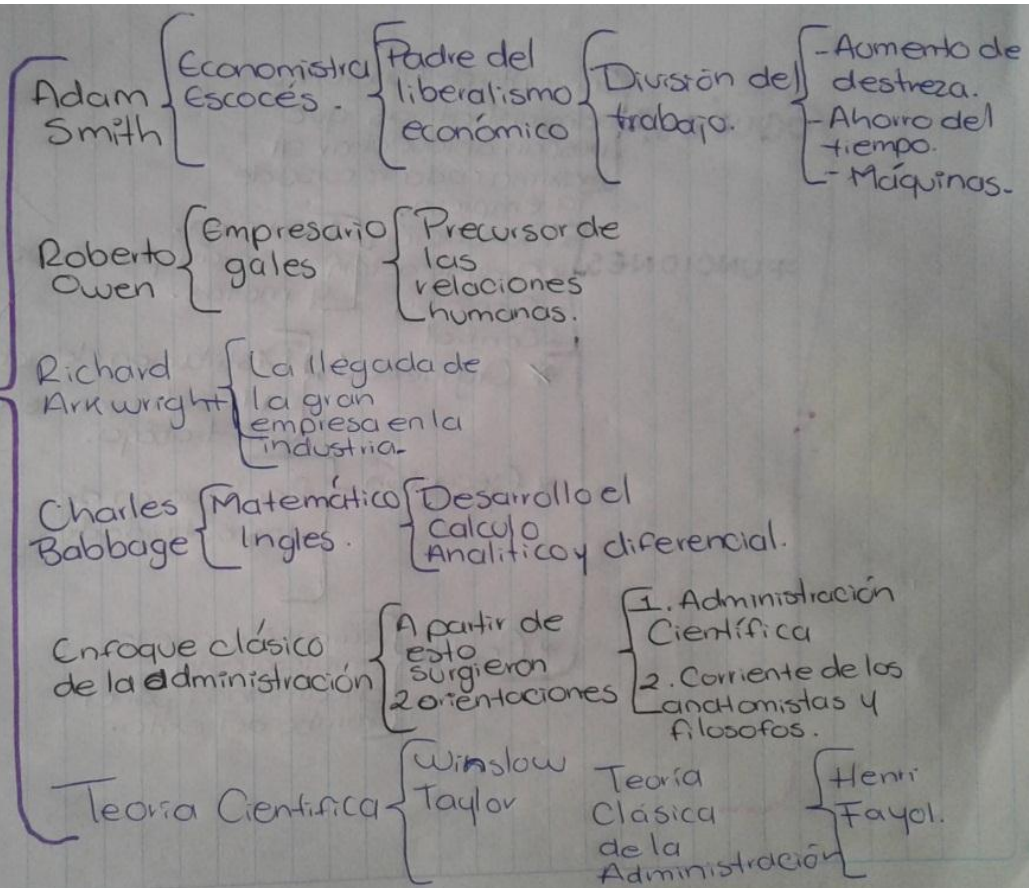 Adam
Smith
Economistra
Escocés.
Padre del
liberalismo
económico
División del
trabajo.
- Aumento de
destreza.
- Ahorro del
tiempo.
- Máquinas.
Roberto
Owen
Empresario
gales
Precursor de
las
relaciones
humanas.
Richard
Arkwright
La llegada de
la gran
empresa en la
industria.
Charles
Babbage
Matemático
Ingles.
Desarrollo el
Calculo
Analitico y diferencial.
Enfoque clásico
de la administración
A partir de
esto
surgieron
2 orientaciones
1. Administración
Científica
2. Corriente de los
anatomistas y
filosofos.
Teoria Cientifica
Winslow
Taylor
Teoría
Clásica
de la
Administración
Henri
Fayol.